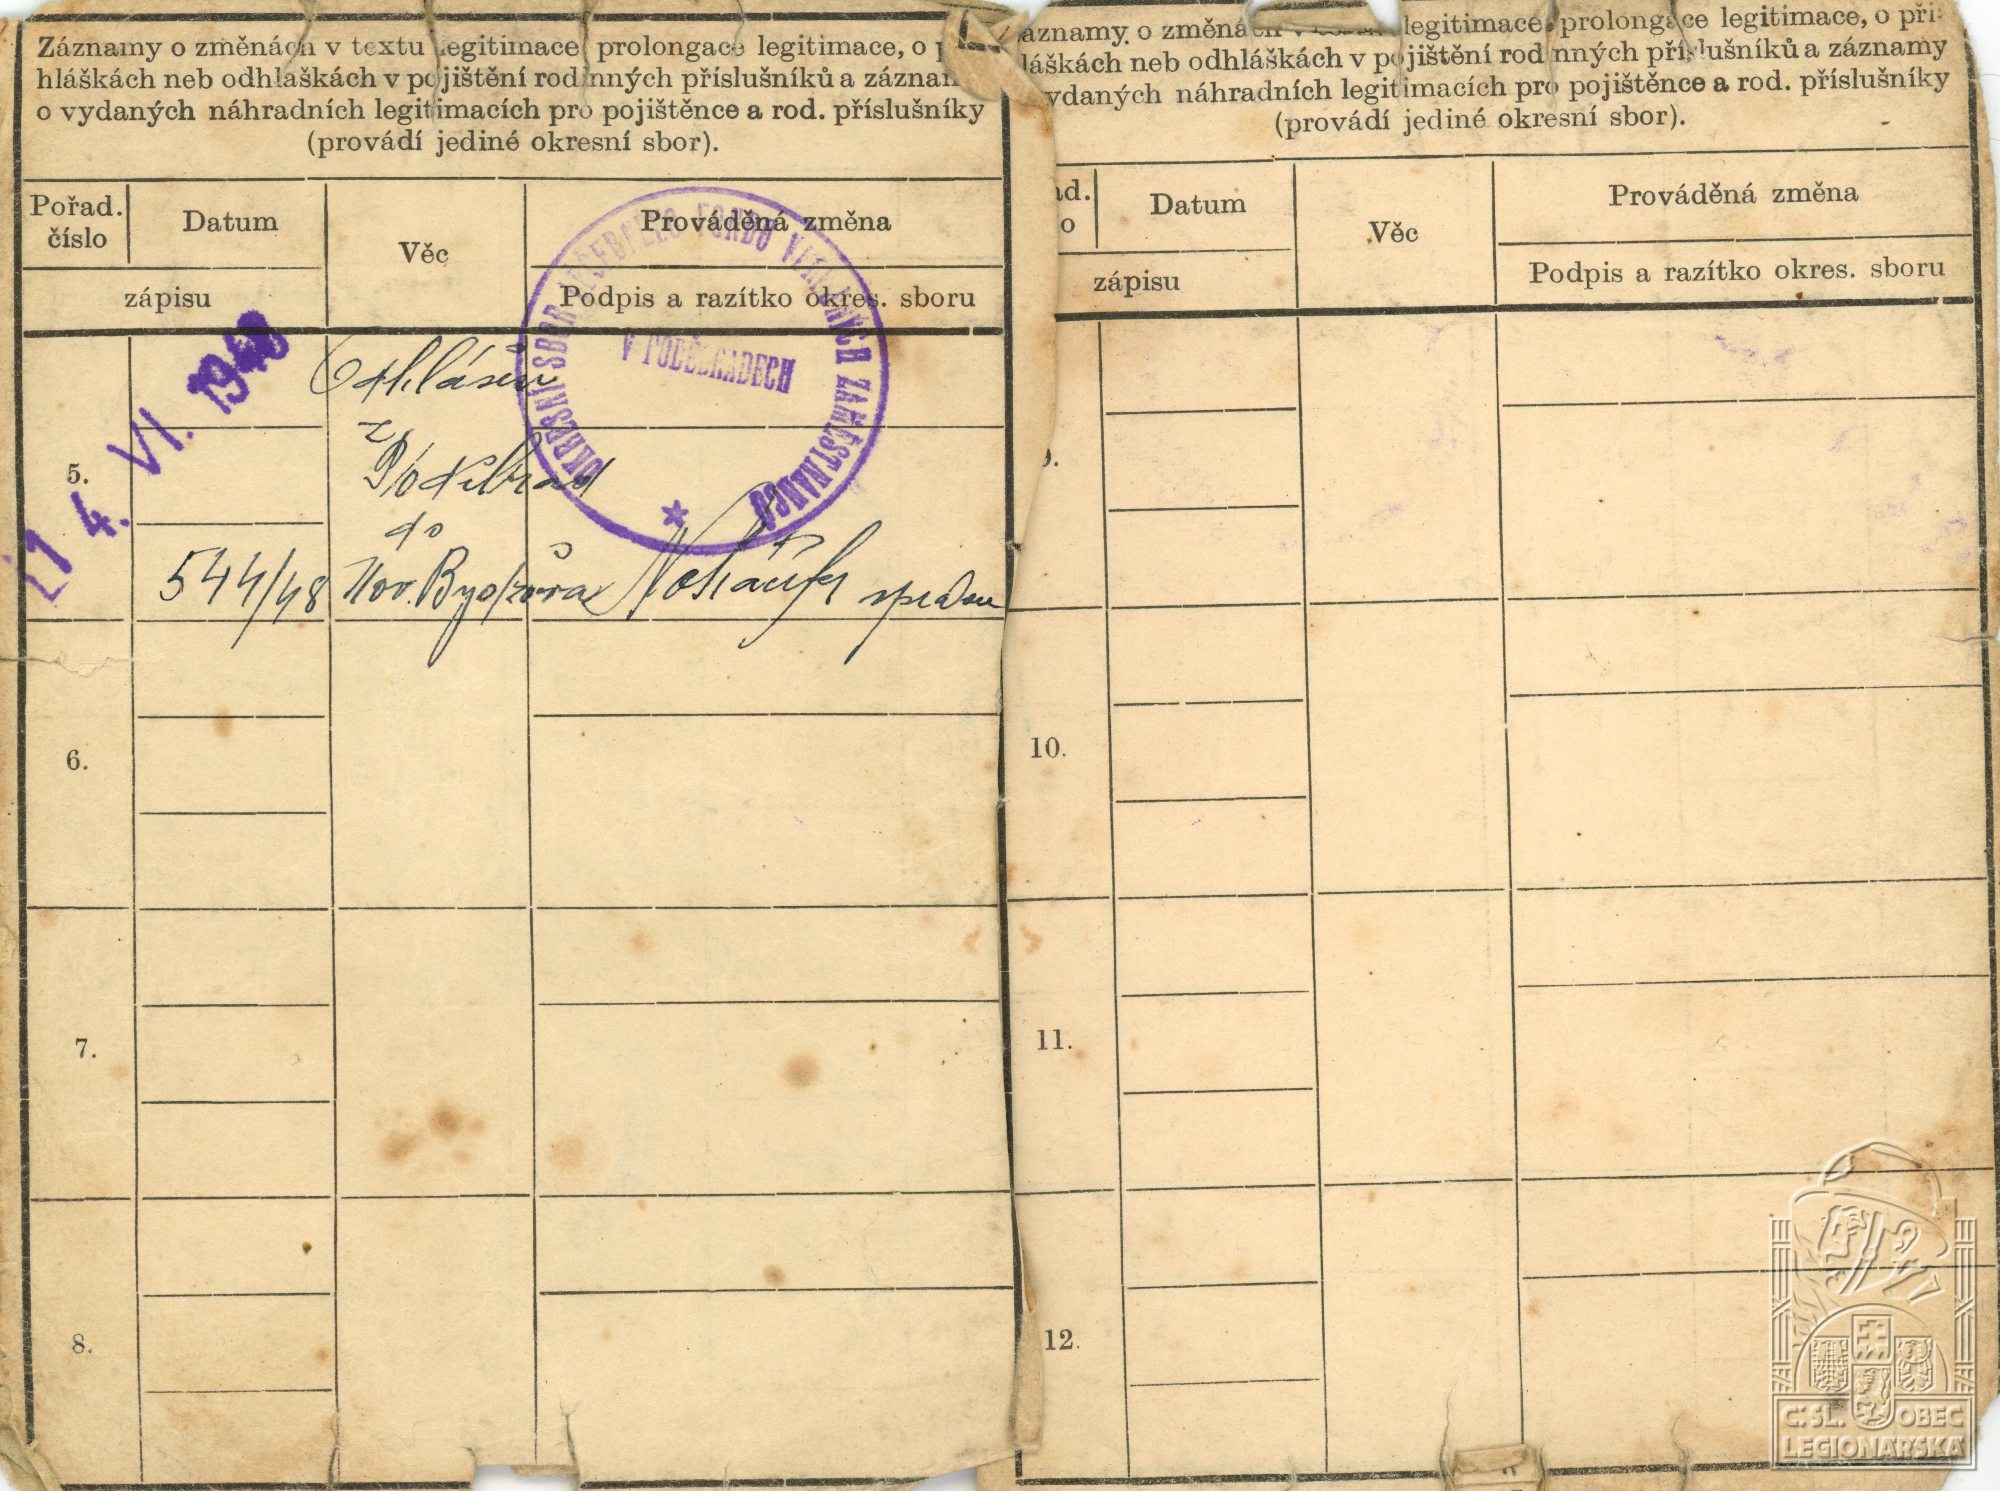 Záznamy o změnách v textu legitimace, prolongace legitimace, o
hláškách neb odhláškách v pojištění rodinných příslušníků a záznam
o vydaných náhradních legitimacích pro pojištěnce a rod. příslušníky
(provádí jediné okresní sbor).
Pořad. číslo
Datum
zápisu
Věc
Prováděná změna
Podpis a razítko okres. sboru
OKRESNÍ SBOR LÉČEBNÉHO FONDU VEŘEJNÝCH ZAMĚSTNANCŮ
V PODĚBRADECH
4. VI. 1948
Odhlášen
z
Poděbrad
do
5.
544/48
Nov. Bydžova
6.
7.
8.
áznamy o změnách v legitimace, prolongace legitimace, o při-
láškách neb odhláškách v pojištění rodinných příslušníků a záznamy
vydaných náhradních legitimacích pro pojištěnce a rod. příslušníky
(provádí jediné okresní sbor).
ad.
o
Datum
zápisu
Věc
Prováděná změna
Podpis a razítko okres. sboru
9.
10.
11.
12.
Č. SL. OBEC
LEGIONÁŘSKÁ